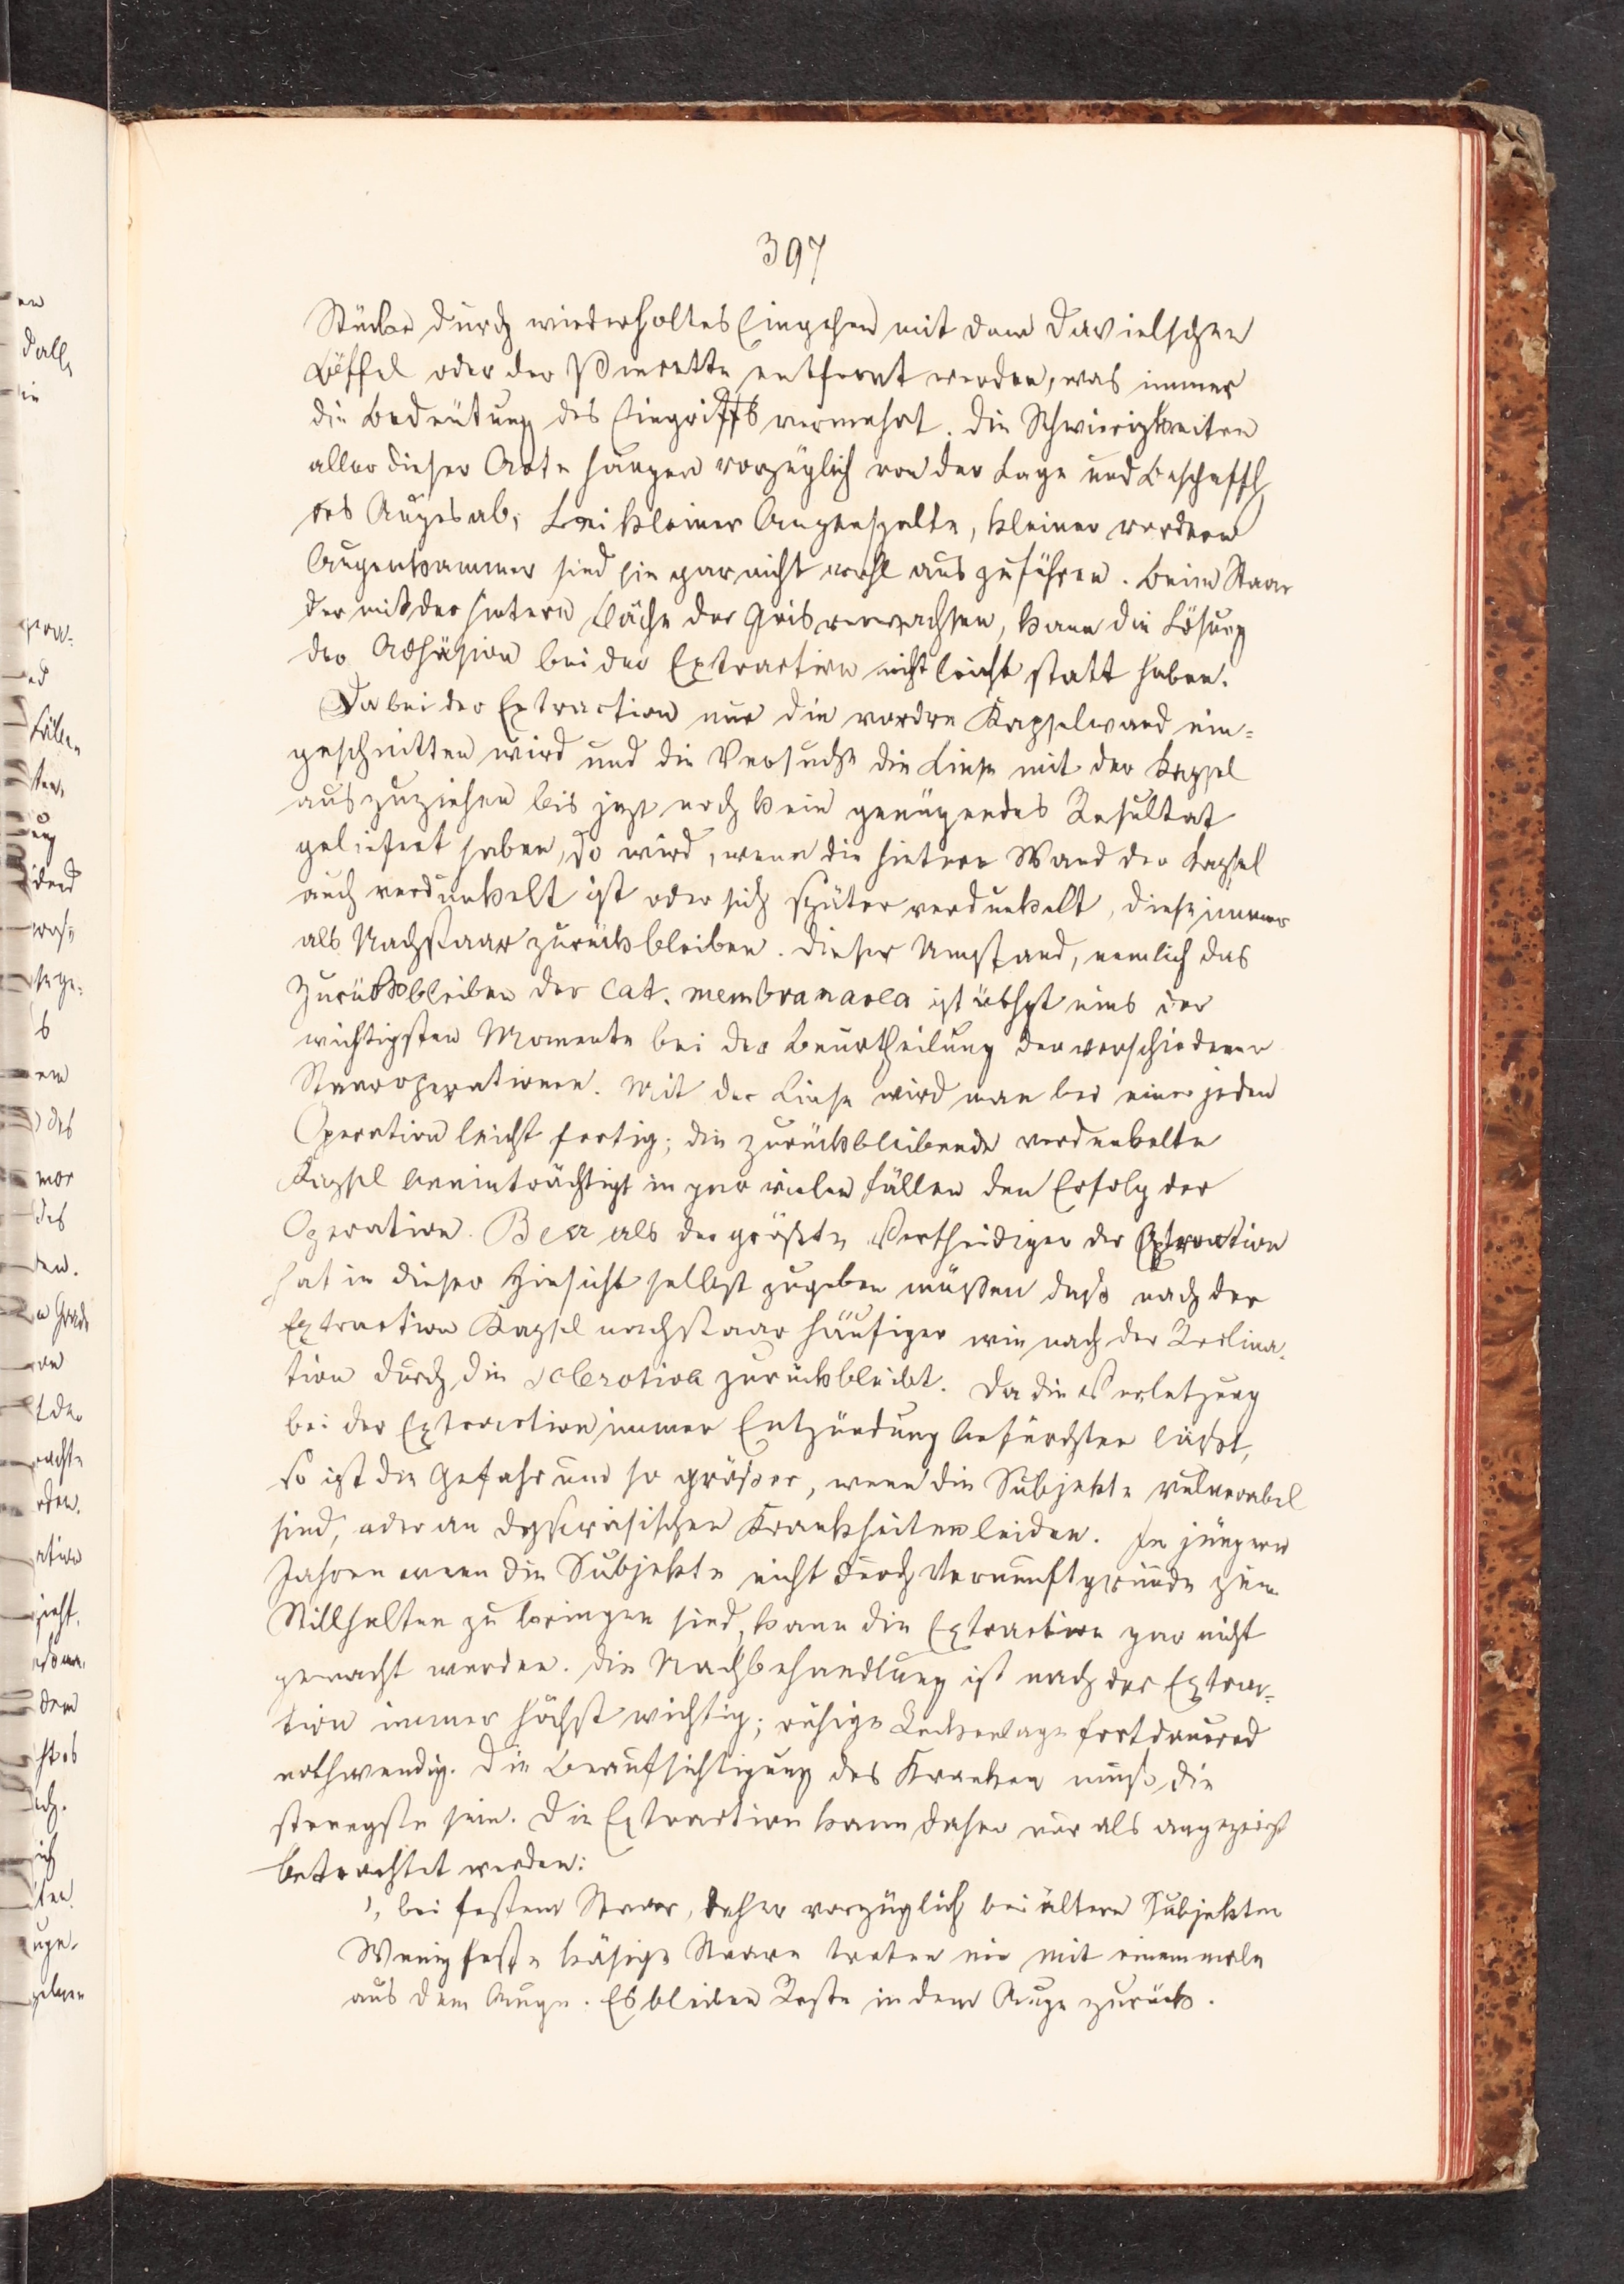 397
Stücke durch wiederholtes Eingehen mit dem Davielschen
Löffel oder der Pincette entfernt werden, was immer
die Bedeutung des Eingriffs vermehrt. Die Schwierigkeiten
aller dieser Acte hängen vorzüglich von der Lage und Beschaffh
des Auges ab; bei kleiner Augenspalte, kleiner vordern
Augenkammer sind sie gar nicht wohl auszuführen. Beim Staar
der mit der hintern Fläche der Iris verwachsen, kann die Lösung
der Adhäsion bei der Extraction nicht leicht statt haben.
Da bei der Extraction nur die vordre Kapselwand ein=
geschnitten wird und die Versuche die Linse mit der Kapsel
auszuziehen bis jezt noch kein genügendes Resultat
geliefert haben, so wird, wenn die hintere Wand der Kapsel
auch verdunkelt ist oder sich später verdunkelt, diese immer
als Nachstaar zurückbleiben. Dieser Umstand, nemlich das
Zurückbleiben der Cat. membranacea ist übhpt eins der
wichtigsten Momente bei der Beurtheilung der verschiedenen
Staaroperationen. Mit der Linse wird man bei einer jeden
Operation leicht fertig; die zurückbleibende verdunkelte
Kapsel beeinträchtigt in gar vielen Fällen den Erfolg der
Operation. Beer als der größte Vertheidiger der Extraction
hat in dieser Hinsicht selbst zugeben müßen daß nach der
Extraction Kapselnachstaar häufiger wie nach der Reclina=
tion durch die Sclerotica zurückbleibt. Da die Verletzung
bei der Extraction immer Entzündung befürchten läßt,
so ist die Gefahr um so größer, wenn die Subjekte vulnerabel
sind, oder an dyscrasischen Krankheiten leiden. In jüngern
Jahren wenn die Subjekte nicht durch Vernunftgründe zum
Stillhalten zu bringen sind, kann die Extraction gar nicht
gemacht werden. Die Nachbehandlung ist nach der Extrac=
tion immer höchst wichtig; ruhige Rückenlage fortdauernd
nothwendig. Die Beaufsichtigung des Kranken muß die
strengste sein. Die Extraction kann daher nur als angezeigt
betrachtet werden:
1, bei festem Staar, daher vorzüglich bei ältern Subjekten
Wenig feste käsige Staare treten nie mit einemmale
aus dem Auge. Es bleiben Reste in dem Auge zurück.